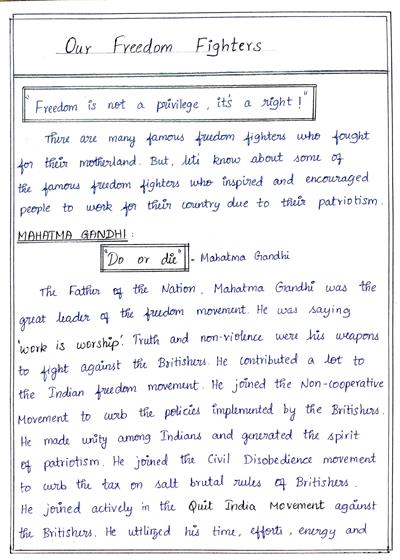 Our Freedom Fighters
"Freedom is not a privilege, it's a right!"
There are many famous freedom fighters who fought
for their motherland. But, let's know about some of
the famous freedom fighters who inspired and encouraged
people to work for their country due to their patriotism.
MAHATMA GANDHI :
"Do or die" - Mahatma Gandhi
The Father of the Nation, Mahatma Gandhi was the
great leader of the freedom movement. He was saying
'work is worship'. Truth and non-violence were his weapons
to fight against the Britishers. He contributed a lot to
the Indian freedom movement. He joined the Non-Cooperative
Movement to curb the policies implemented by the Britishers.
He made unity among Indians and generated the spirit
of patriotism. He joined the Civil Disobedience movement
to curb the tax on salt brutal rules of Britishers.
He joined actively in the Quit India Movement against
the Britishers. He utilized his time, efforts, energy and